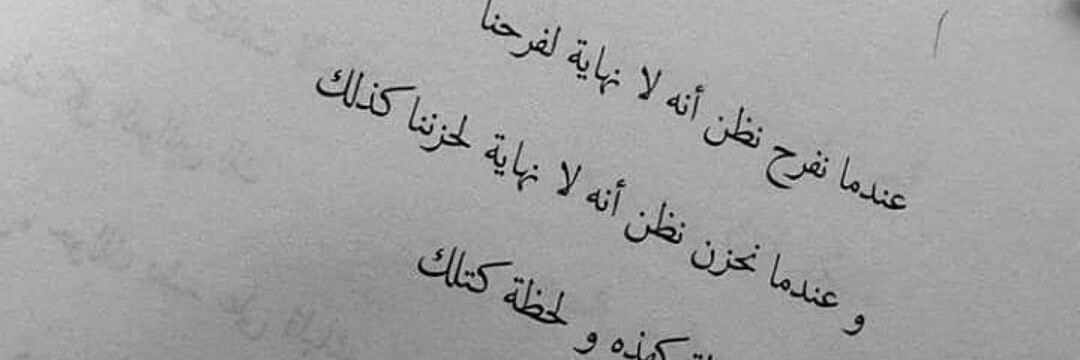 عندما نفرح نظن أنه لا نهاية لفرحنا
و عندما نحزن نظن أنه لا نهاية لحزننا كذلك
كهذه و لحظة كتلك